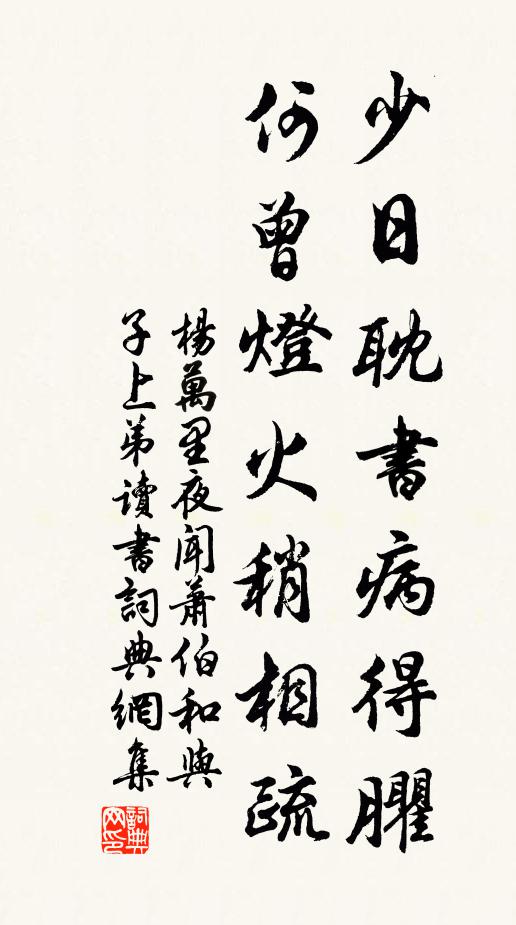 少日耽書病得臞
何曾燈火稍相疏
楊萬里夜聞蕭伯和與
子上弟讀書詞典網集
詞典
网印